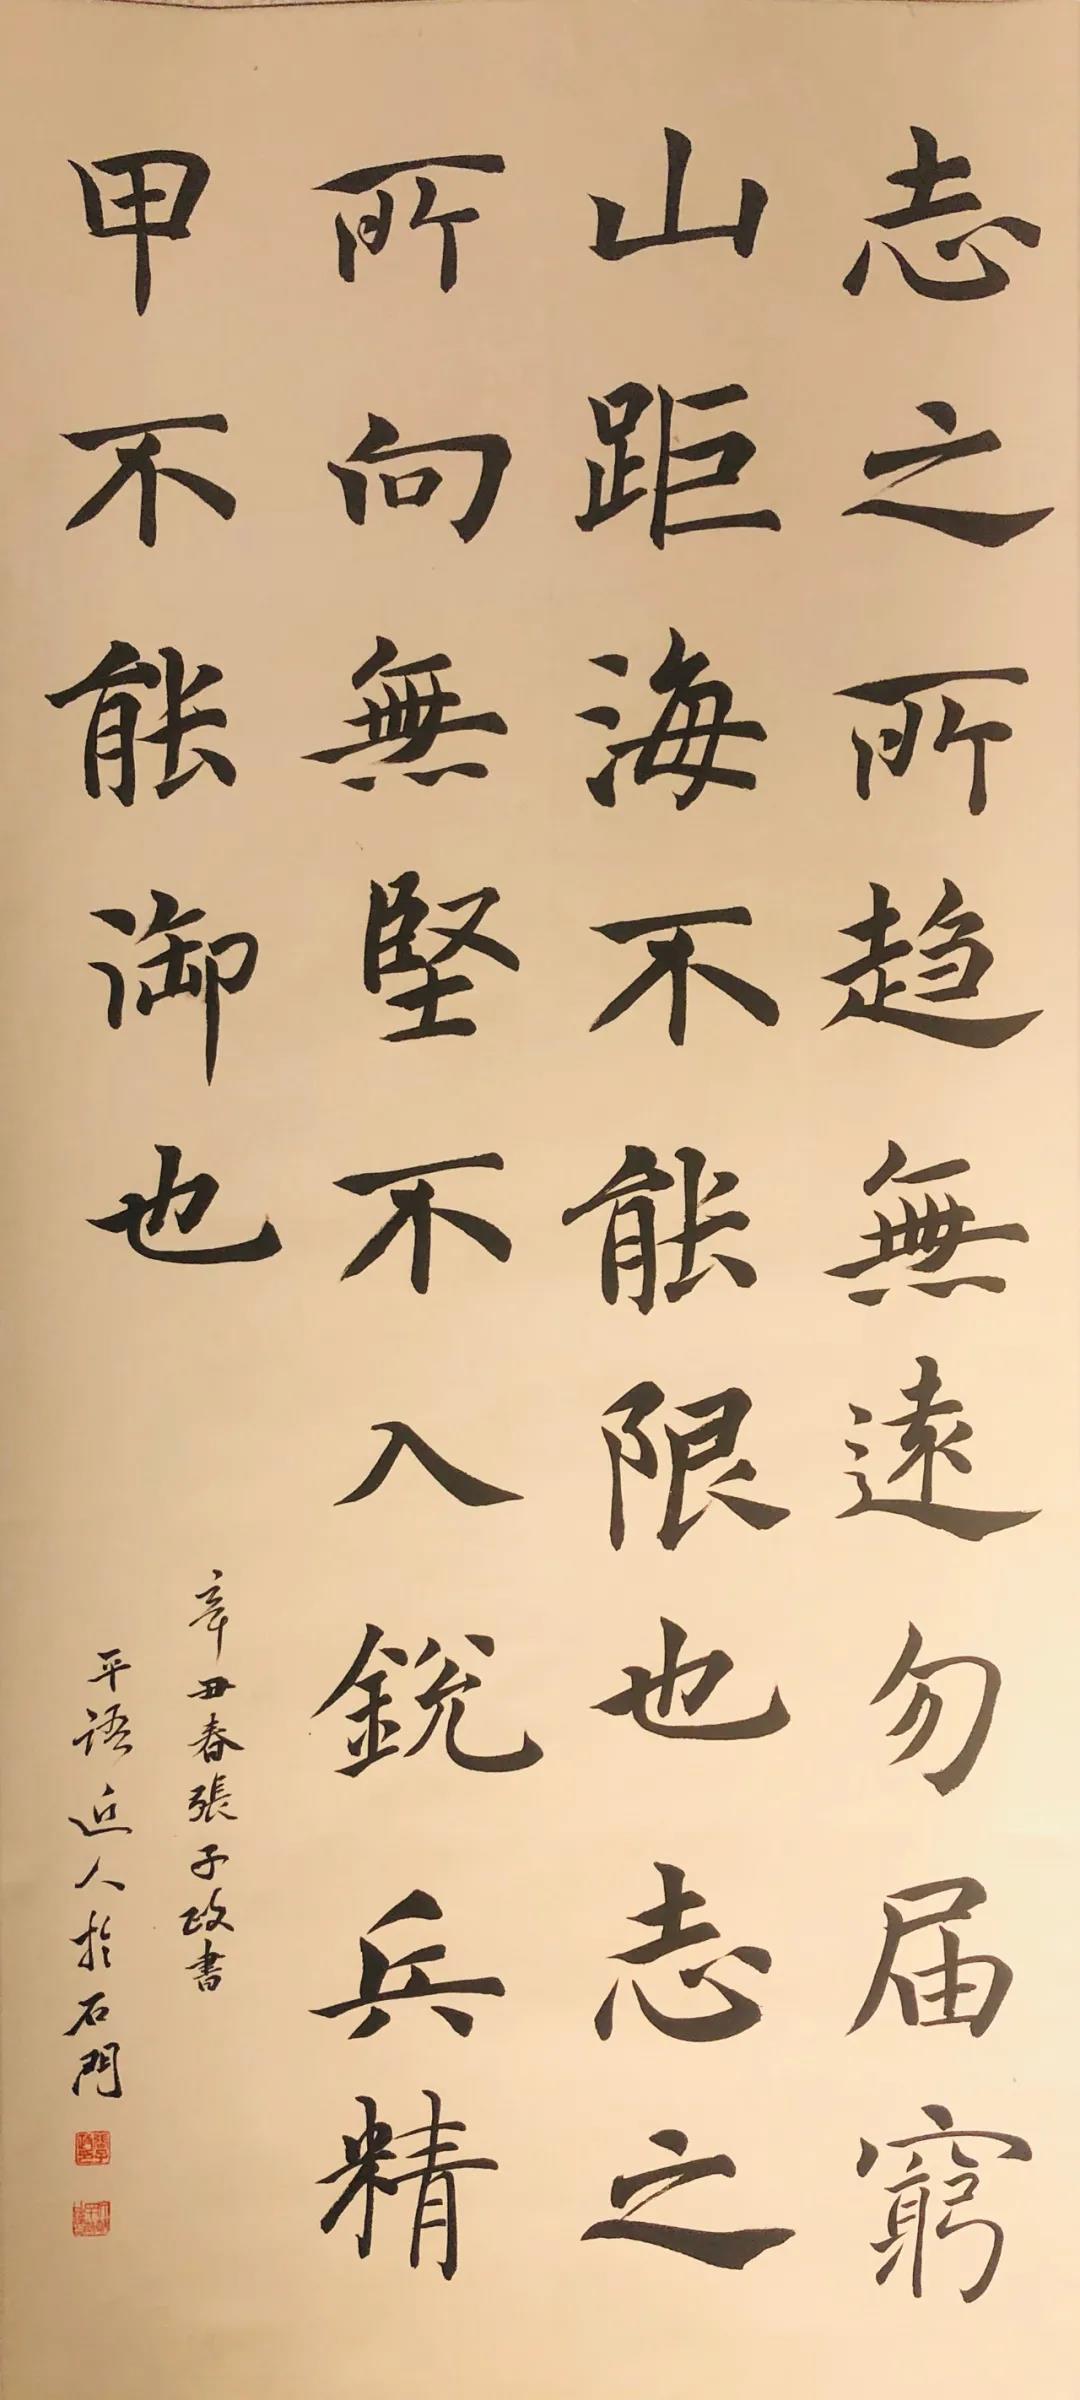 志之所趋無遠勿届窮
山距海不能限也志之
所向無堅不入銳兵精
甲不能御也
辛丑春張子政書
平語近人於石門